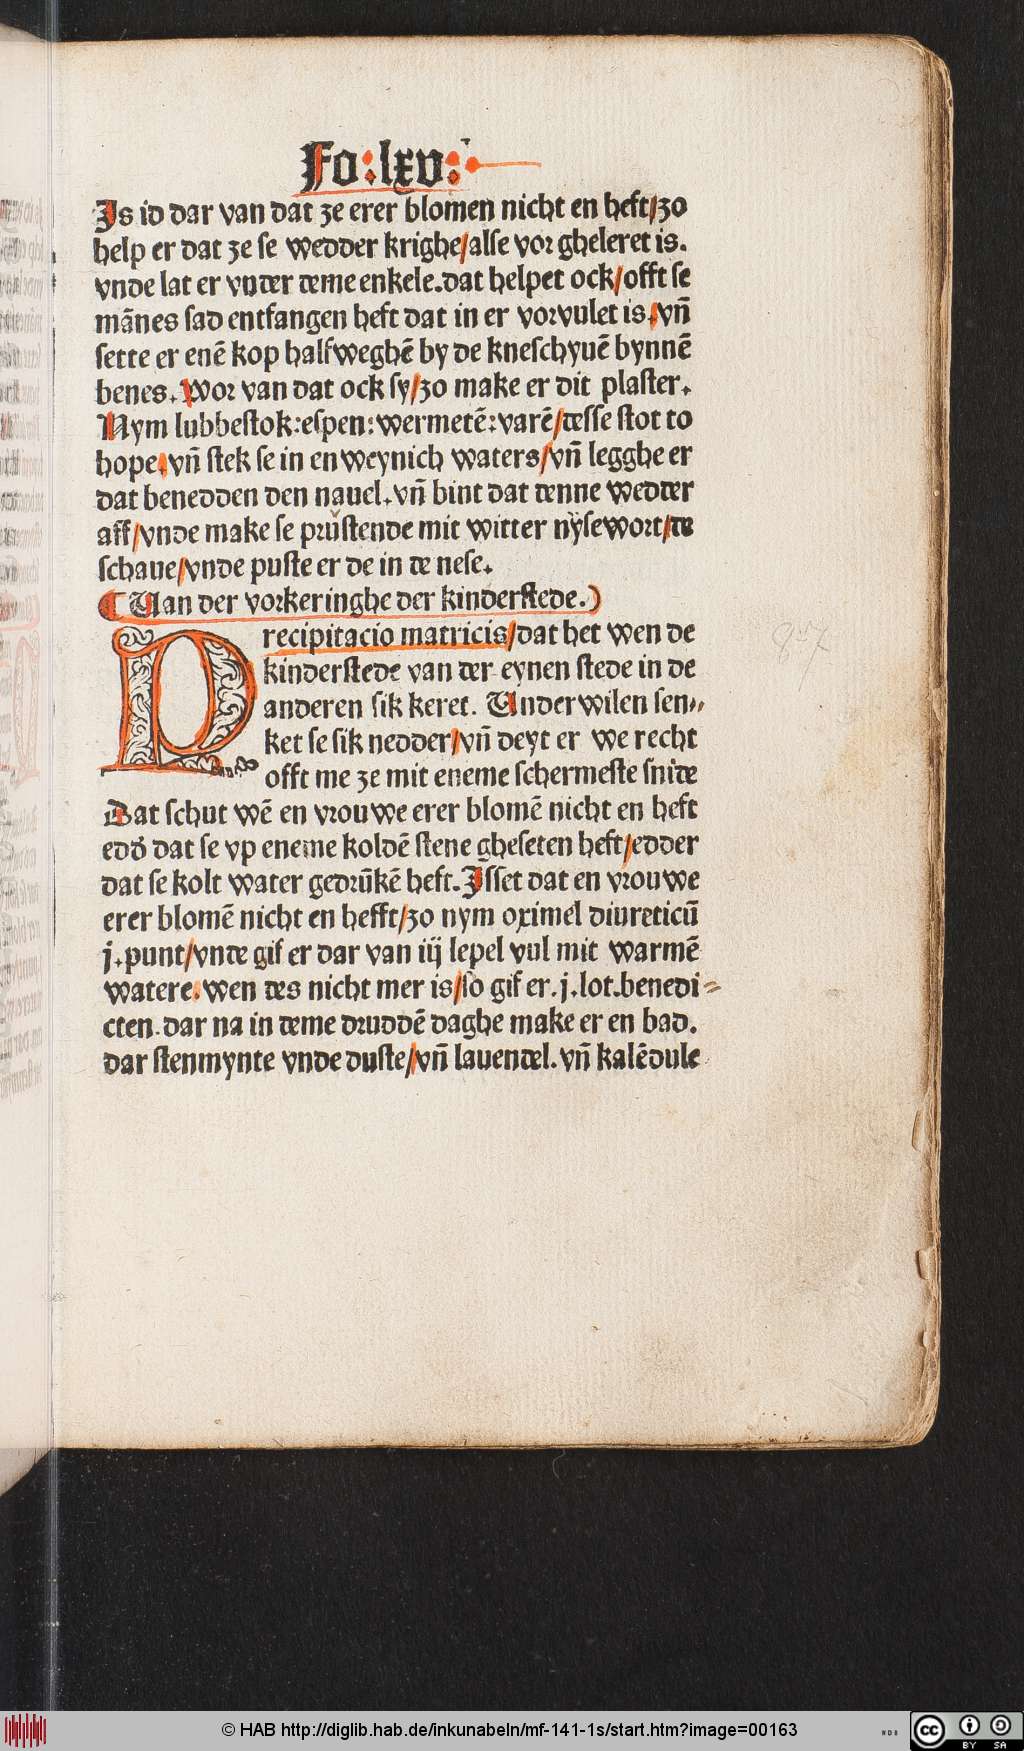 Fo:lxv:
Is id dar van dat ze erer blomen nicht en heft/zo
help er dat ze se wedder krighe/alse vor gheleret is.
vnde lat er vnder deme enkele.dat helpet ock/offt se
mānes sad entfangen heft dat in er vorvulet is.vn̄
sette er enē kop halfweghē by de kneschyuē bynnē
benes.Wor van dat ock sy/zo make er dit plaster.
Nym lubbestok:espen:wermetē:varē/desse stot to
hope.vn̄ stek se in en weynich waters/vn̄ legghe er
dat benedden den nauel.vn̄ bint dat denne wedder
aff/vnde make se průstende mit witter nÿsewort/de
schaue/vnde puste er de in de nese.
Uan der vorkeringhe der kinderstede.
Precipitacio matricis/dat het wen de
kinderstede van der eynen stede in de
anderen sik keret. Underwilen sen⸗
ket se sik nedder/vn̄ deyt er we recht
offt me ze mit eneme schermeste snide
Dat schut wē en vrouwe erer blomē nicht en heft
edđ dat se vp eneme koldē stene gheseten heft/edder
dat se kolt water gedrūkē heft.Isset dat en vrouwe
erer blomē nicht en hefft/zo nym oximel diureticū
j.punt/vnde gif er dar van iij lepel vul mit warmē
watere.wen des nicht mer is/so gif er.j.lot.benedi⸗
cten.dar na in deme druddē daghe make er en bad.
dar stenmynte vnde duste/vn̄ lauendel.vn̄ kalēdule
© HAB http://diglib.hab.de/inkunabeln/mf-141-1s/start.htm?image=00163
WDB
cc BY SA